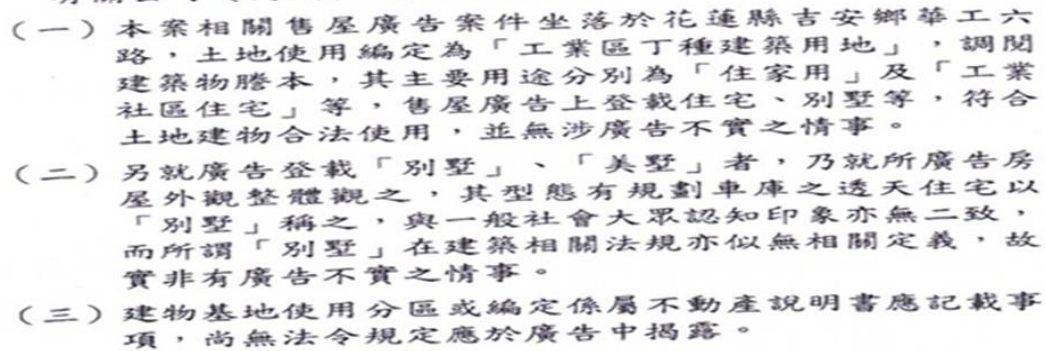 （一）本案相關售屋廣告案件坐落於花蓮縣吉安鄉華工六
路，土地使用編定為「工業區丁種建築用地」，調閱
建築物謄本，其主要用途分別為「住家用」及「工業
社區住宅」等，售屋廣告上登載住宅、別墅等，符合
土地建物合法使用，並無涉廣告不實之情事。
（二）另就廣告登載「別墅」、「美墅」者，乃就所廣告房
屋外觀整體觀之，其型態有規劃車庫之透天住宅以
「別墅」稱之，與一般社會大眾認知印象亦無二致，
而所謂「別墅」在建築相關法規亦似無相關定義，故
實非有廣告不實之情事。
（三）建物基地使用分區或編定係屬不動產說明書應記載事
項，尚無法令規定應於廣告中揭露。